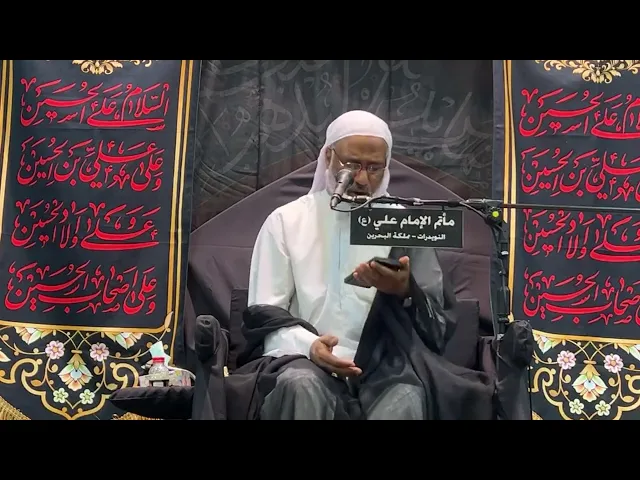 السلام على الحسين
وعلى علي بن الحسين
وعلى أولاد الحسين
وعلى أصحاب الحسين
مأتم الإمام علي (ع)
النويدرات - مملكة البحرين
السلام على الحسين
وعلى علي بن الحسين
وعلى أولاد الحسين
وعلى أصحاب الحسين